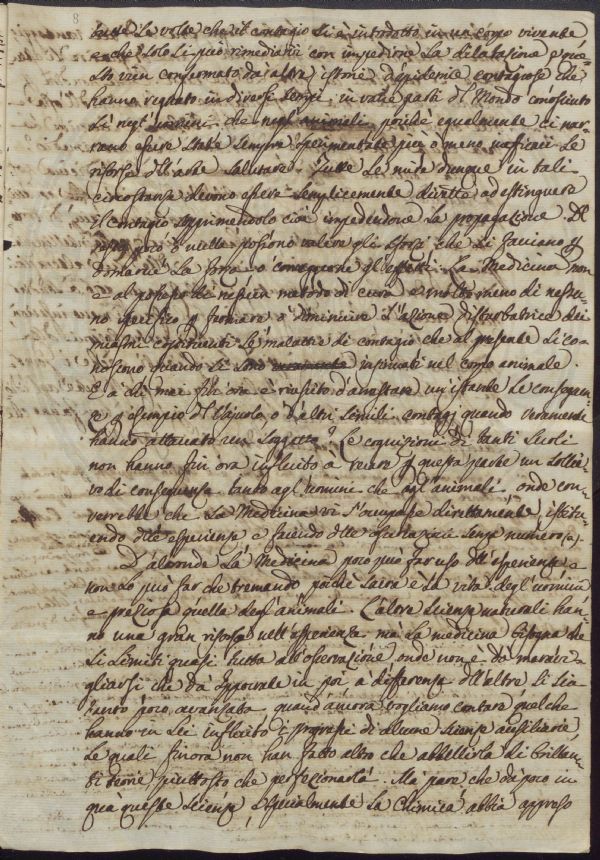 8
tutte le volte che il contagio si è introdotto in un corpo vivente
e che solo si può rimediarvi con impedirne la dilatazione e que-
sto vien confermato da altre istorie d'epidemie contagiose che
hanno regnato in diversi tempi, in varie parti del Mondo conosciuto
sì negl'uomini che negl'animali poiché egualmente ci nar-
rano essere state sempre sperimentate più o meno inefficaci le
risorse dell'arte salutare. Tutte le mire dunque in tali
circostanze devono essere semplicemente dirette ad estinguere
il contagio sopprimendolo cioè impedendone la propagazione
poco o nulla possono valere gli sforzi che si facciano p
domarne la forza o correggerne gl'effetti. La Medicina non
è al possesso di nessun metodo di cura e molto meno di nessu-
no specifico p troncare o diminuire l'azione disturbatrice dei
miasmi costituenti le malattie di contagio che al presente si co-
noscono quando si sono insinuati nel corpo animale.
E a chi mai fin'ora è riuscito d'arrestare un'istante le conseguen-
ze p esempio del Vajuolo, o d'altri simili contagj quando veramente
hanno attaccato un soggetto? Le cognizioni di tanti secoli
non hanno fin ora influito a recare p questa parte un sollie-
vo di conseguenza tanto agl'uomini che agl'animali, onde con-
verrebbe che la Medicina vi s'occupasse direttamente, istitu-
endo delle esperienze e facendo delle osservazioni senza numero (a).
D'altronde la Medicina poco può far uso dell'esperienza e
non lo può far che tremando poiché sacra è la vita degl'uomini
e preziosa quella degl'animali. L'altre scienze naturali han-
no una gran risorsa nell'esperienza ma la medicina bisogna che
si limiti quasi tutta all'osservazione, onde non è da maravi-
gliarsi che da Ippocrate in poi a differenza dell'altre si sia
tanto poco avanzata quand'ancora vogliamo contare qualche
hanno in lei influito i progressi di alcune scienze ausiliarie,
le quali finora non han fatto altro che abbellirla di brillan-
ti teorie piuttosto che perfezionarla. Ma pare che da poco in
quà queste scienze, e specialmente la Chimica abbia appreso